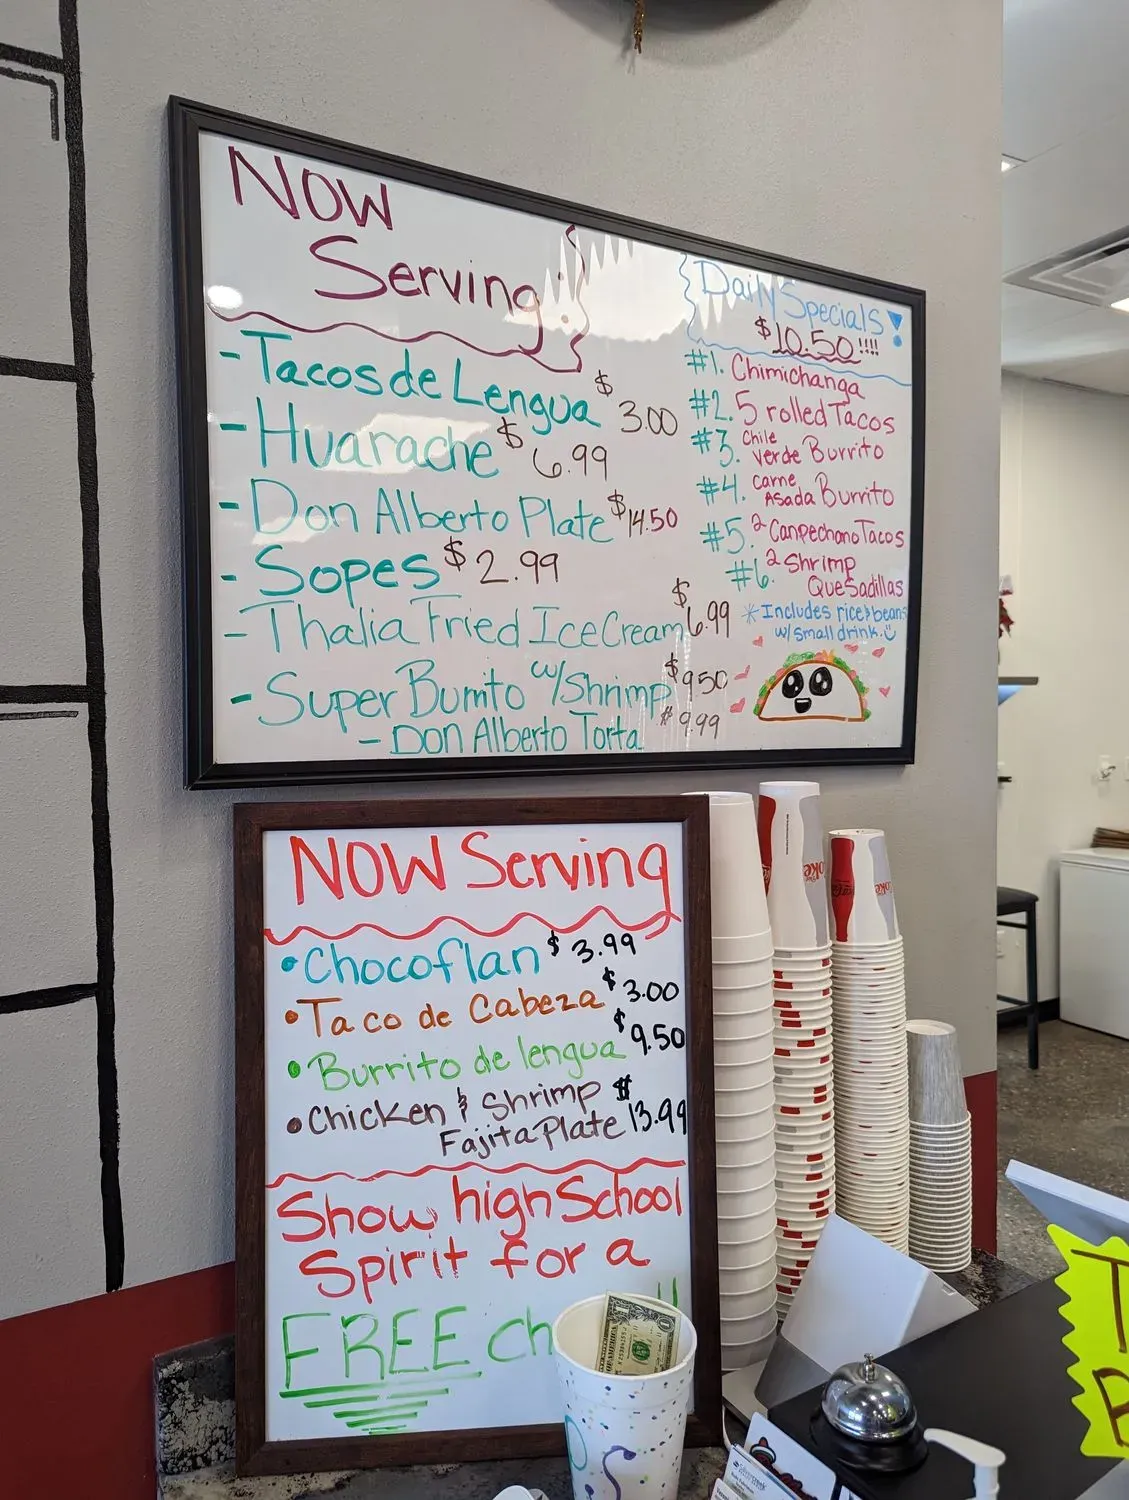 NOW
Serving
- Tacos de Lengua $3.00
- Huarache $6.99
- Don Alberto Plate $14.50
- Sopes $2.99
- Thalia Fried Ice Cream $6.99
- Super Burrito w/Shrimp $9.50
- Don Alberto Torta $9.99
Daily Specials!
$10.50!!!!
#1. Chimichanga
#2. 5 rolled Tacos
#3. Chile Verde Burrito
#4. Carne Asada Burrito
#5. 2 Canpechano Tacos
#6. 2 Shrimp
Quesadillas
*Includes rice & beans
w/small drink.
NOW Serving
• Chocoflan $3.99
• Taco de Cabeza $3.00
• Burrito de lengua $9.50
• Chicken & Shrimp
Fajita Plate $13.99
Show high School
Spirit for a
FREE ch